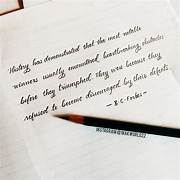 History has demonstrated that the most notable
winners usually encountered heartbreaking obstacles
before they triumphed. They won because they
refused to become discouraged by their defeats.
- B.C. Forbes